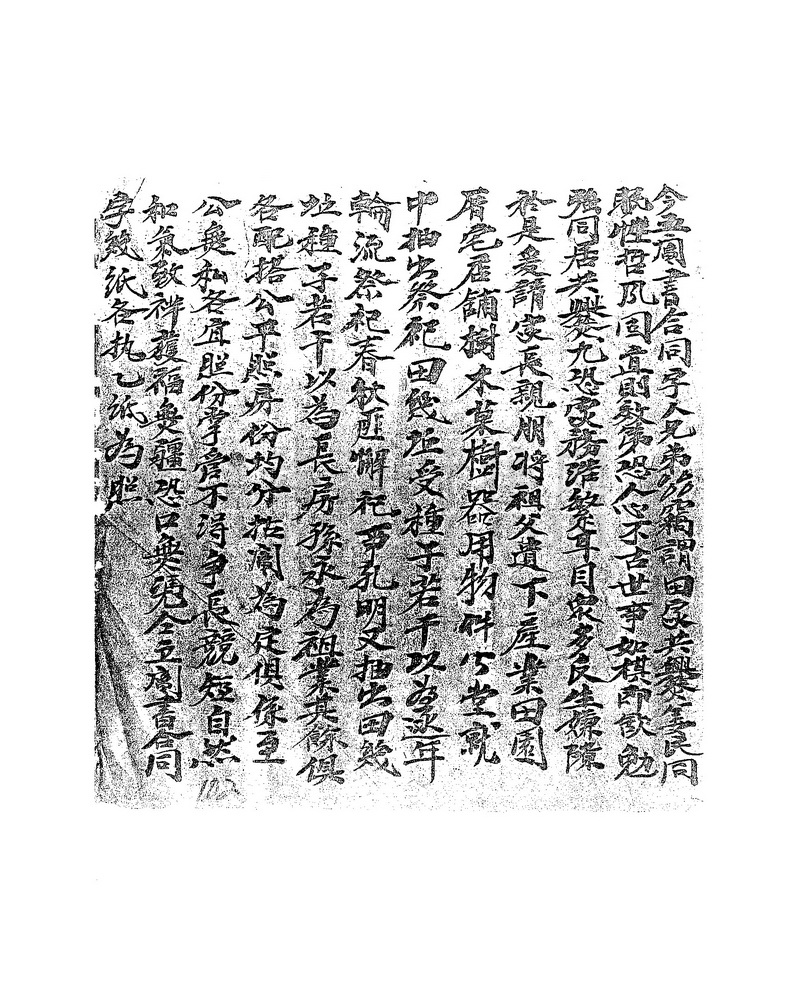 今立鬮書合同字人兄弟等竊謂田家共爨姜民同
眠懽哲風固宜則效第恐人心不古世事如棋即歎勉
強同居共爨尤恐家務浩繁耳目衆多反生嫌隙
於是爰請家長親朋將祖父遺下產業田園
厝宅店舖樹木菓樹器用物件公堂就
中抽出祭祀田幾坵受種子若干以為逐年
輪流祭祀春秋匪懈祀事孔明又抽出田幾
坵種子若干以為長房孫永為祖業其餘俱
各配搭公平照房份均分拈鬮為定俱係至
公無私各宜照份掌管不得爭長競短自然
和氣致祥獲福無疆恐口無憑今立鬮書合同
字幾紙各执乙紙為照
102